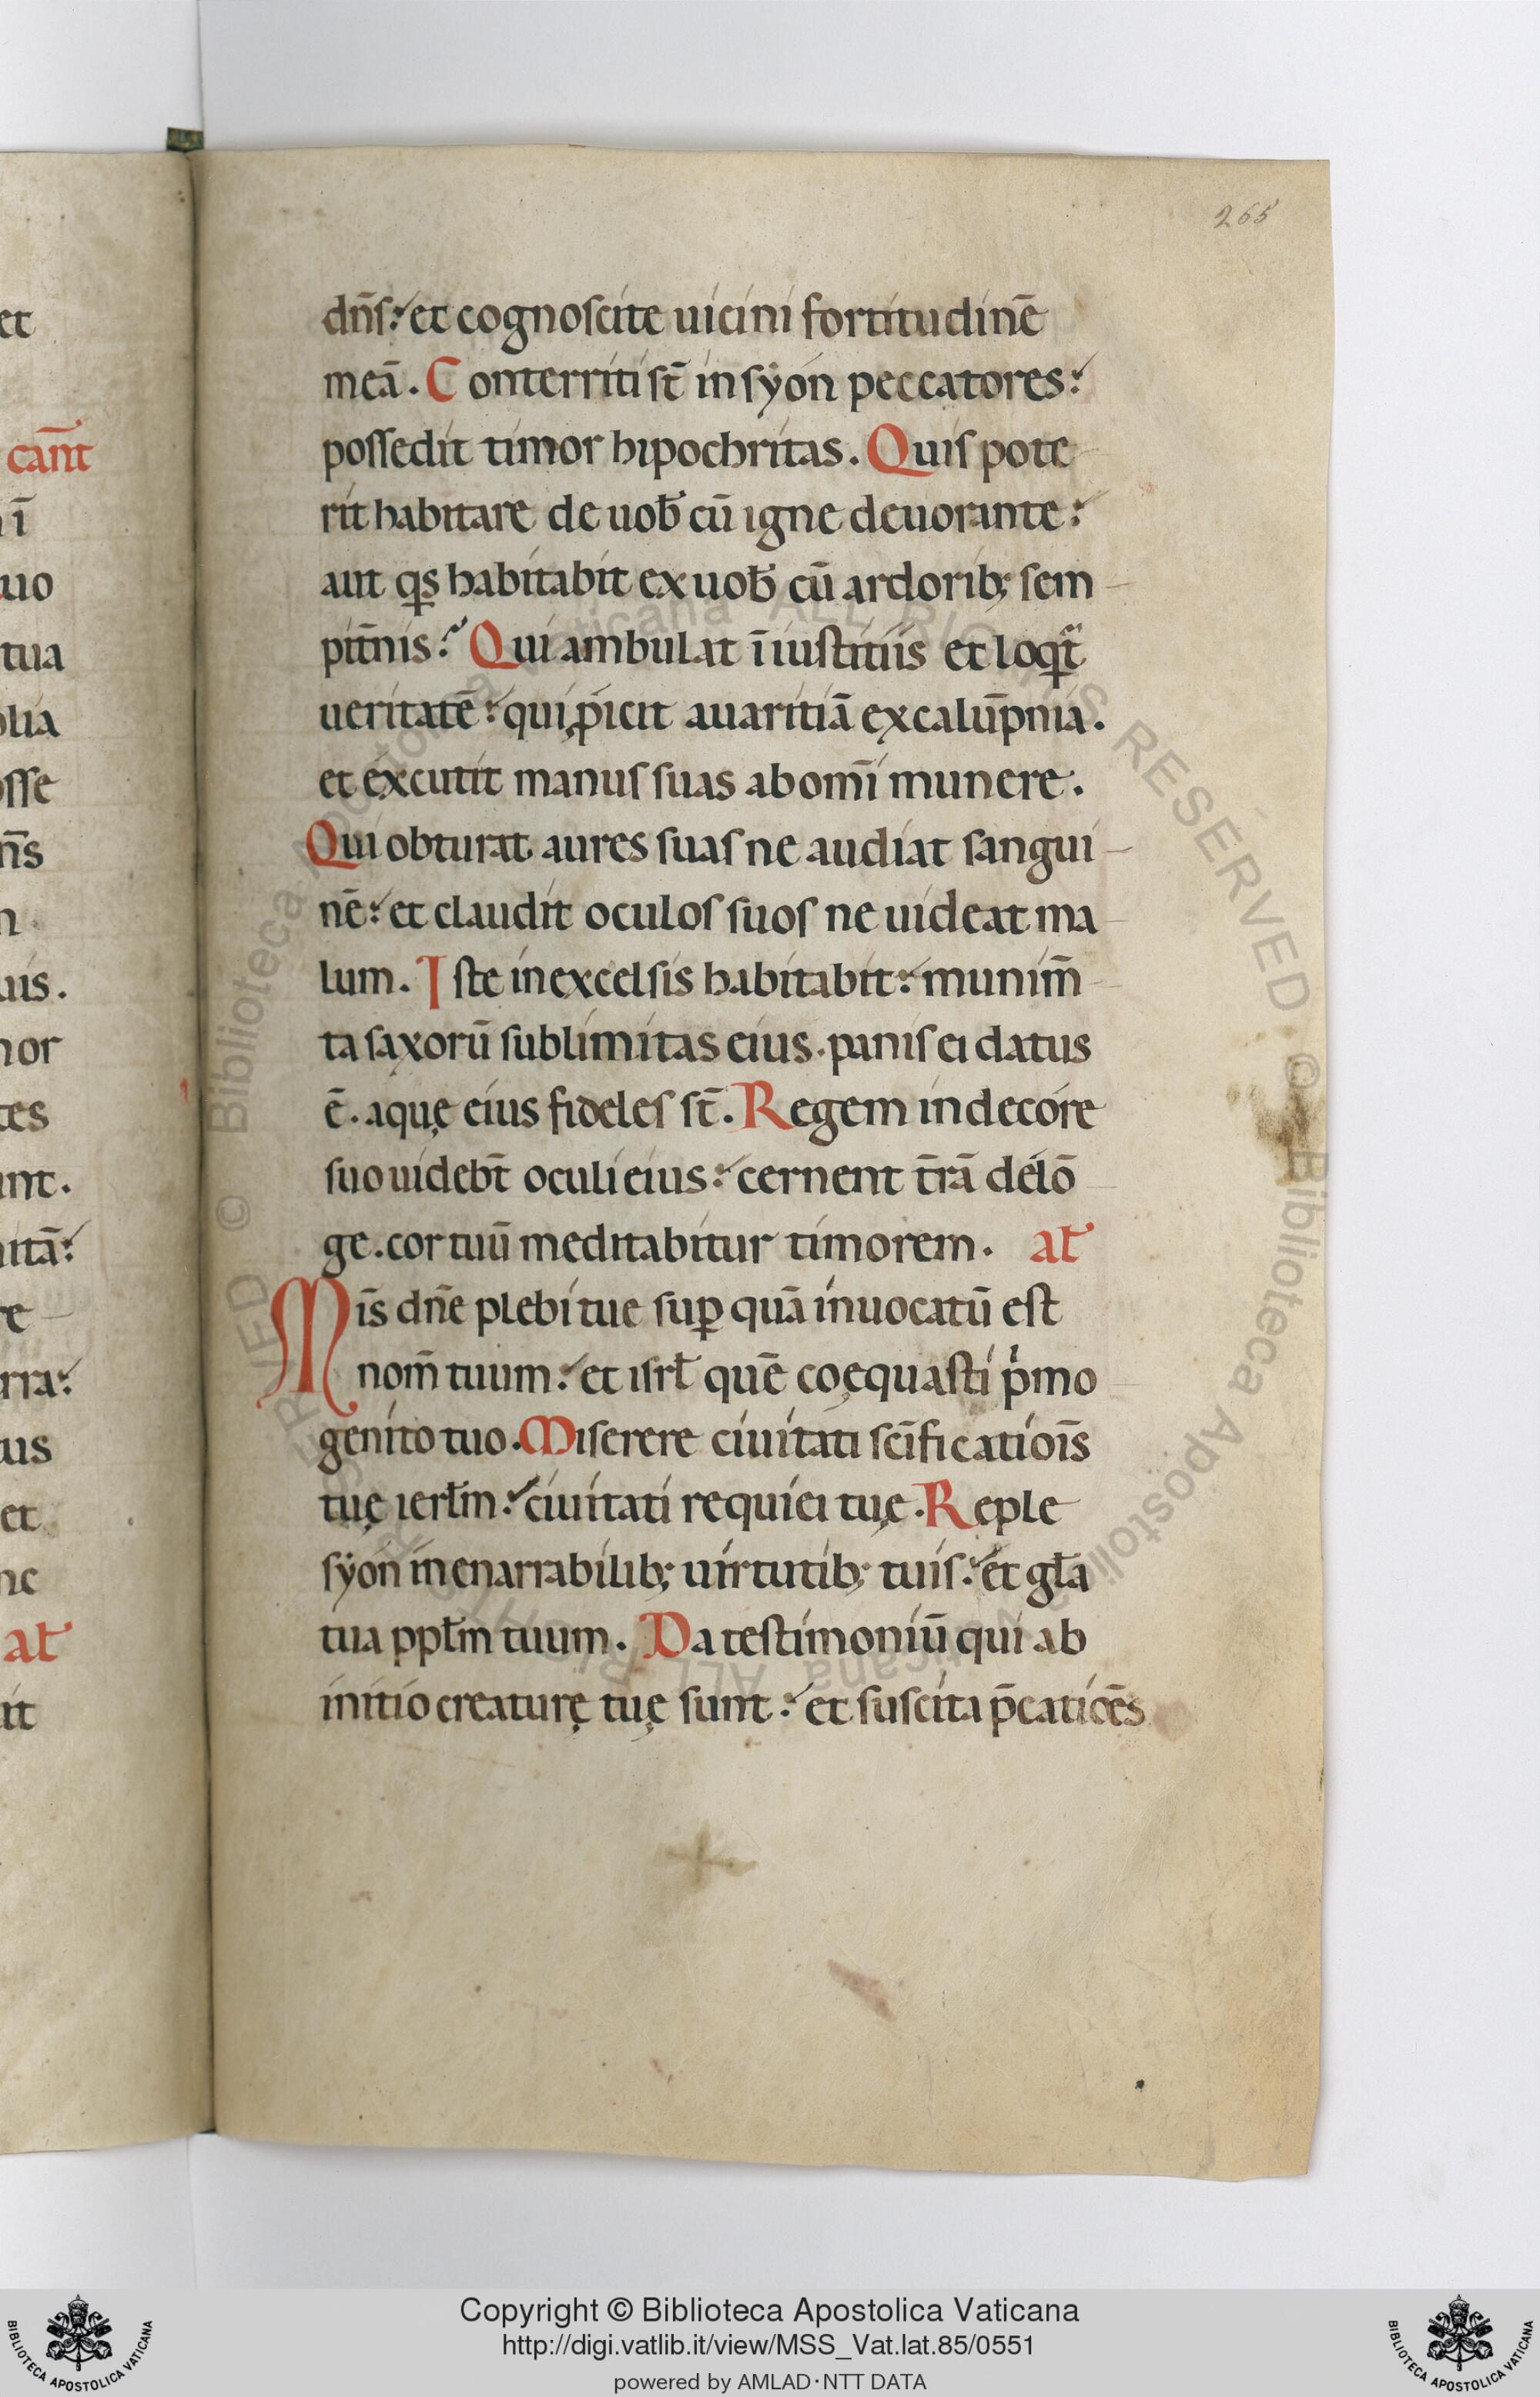 265
et
cañt
ī
uo
tua
olia
osse
n̄s
uis.
mor
tes
unt.
re
rra:
tus
et
nc
at
it
dn̄s: et cognoscite uicini fortitudinē
meā. Conterriti st̄ in syon peccatores:
possedit timor hipochritas. Quis pote
rit habitare de uob̄ cū igne deuorante:
aut qͥs habitabit ex uob̄ cū ardorib; sem
pit̄nis? Qui ambulat ī iustitiis et loqͥt̄
ueritatē: qui ꝓicit auaritiā ex calūpnia.
et excutit manus suas ab om̄i munere.
Qui obturat aures suas ne audiat sangui
nē: et claudit oculos suos ne uideat ma
lum. Iste in excelsis habitabit: munim̄
ta saxorū sublimitas eius. panis ei datus
ē. aquę eius fideles st̄. Regem in decore
suo uidebt̄ oculi eius: cernent t̄rā de lō
ge. cor tuū meditabitur timorem. at
Mis̄ dn̄e plebi tue suꝑ quā inuocatū est
nom̄ tuum: et isrł quē coęquasti pͥmo
genito tuo. Miserere ciuitati sc̄ificatiōis
tuę ierłm: ciuitati requiei tuę. Reple
syon inenarrabilib; uirtutib; tuis: et gła
tua ppłm tuum. Da testimoniū qui ab
initio creaturę tuę sunt: et suscita p̄catiōēs
Copyright © Biblioteca Apostolica Vaticana
http://digi.vatlib.it/view/MSS_Vat.lat.85/0551
powered by AMLAD·NTT DATA
BIBLIOTECA APOSTOLICA VATICANA
BIBLIOTECA APOSTOLICA VATICANA